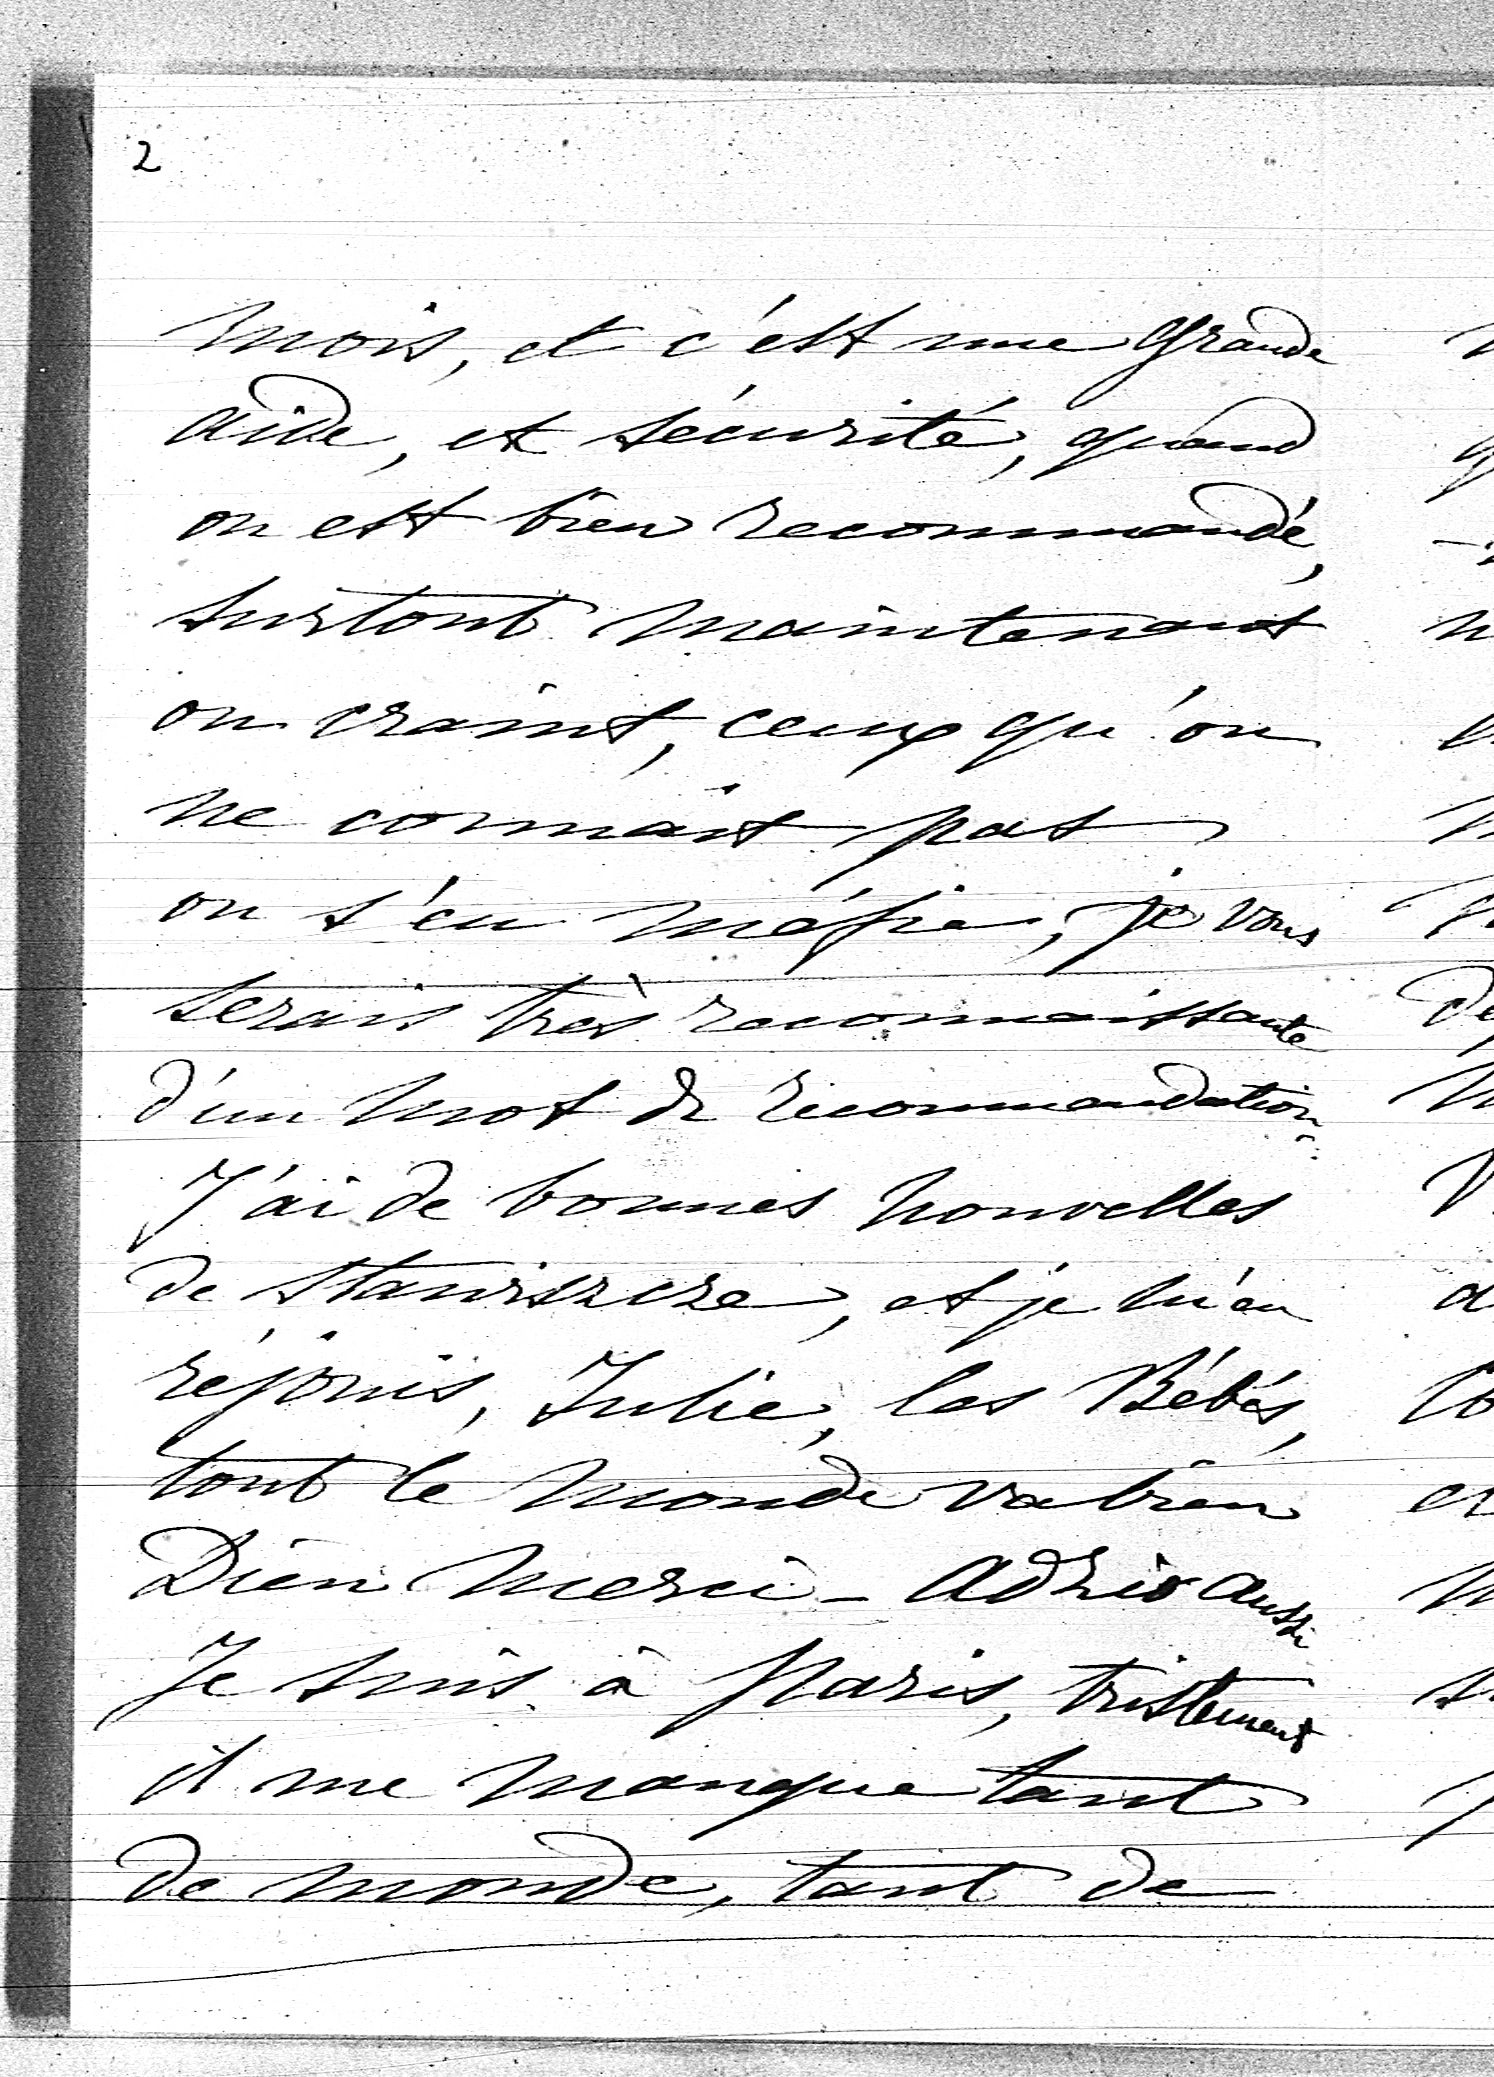 2
mois, et c'est une grande
aide, et sécurité, quand
on est bien recommandé,
surtout maintenant
on craint, ceux qu'on
ne connait pas
on s'en méfie, je vous
serais très reconnaissante
d'un mot de recommandation.
J'ai de bonnes nouvelles
de Stawiszcze, et je m'en
réjouis, Julie, les Bébés,
tout le monde va bien
Dieu merci - Adzio aussi
Je suis à Paris, tristement
il me manque tant
de monde, tant de